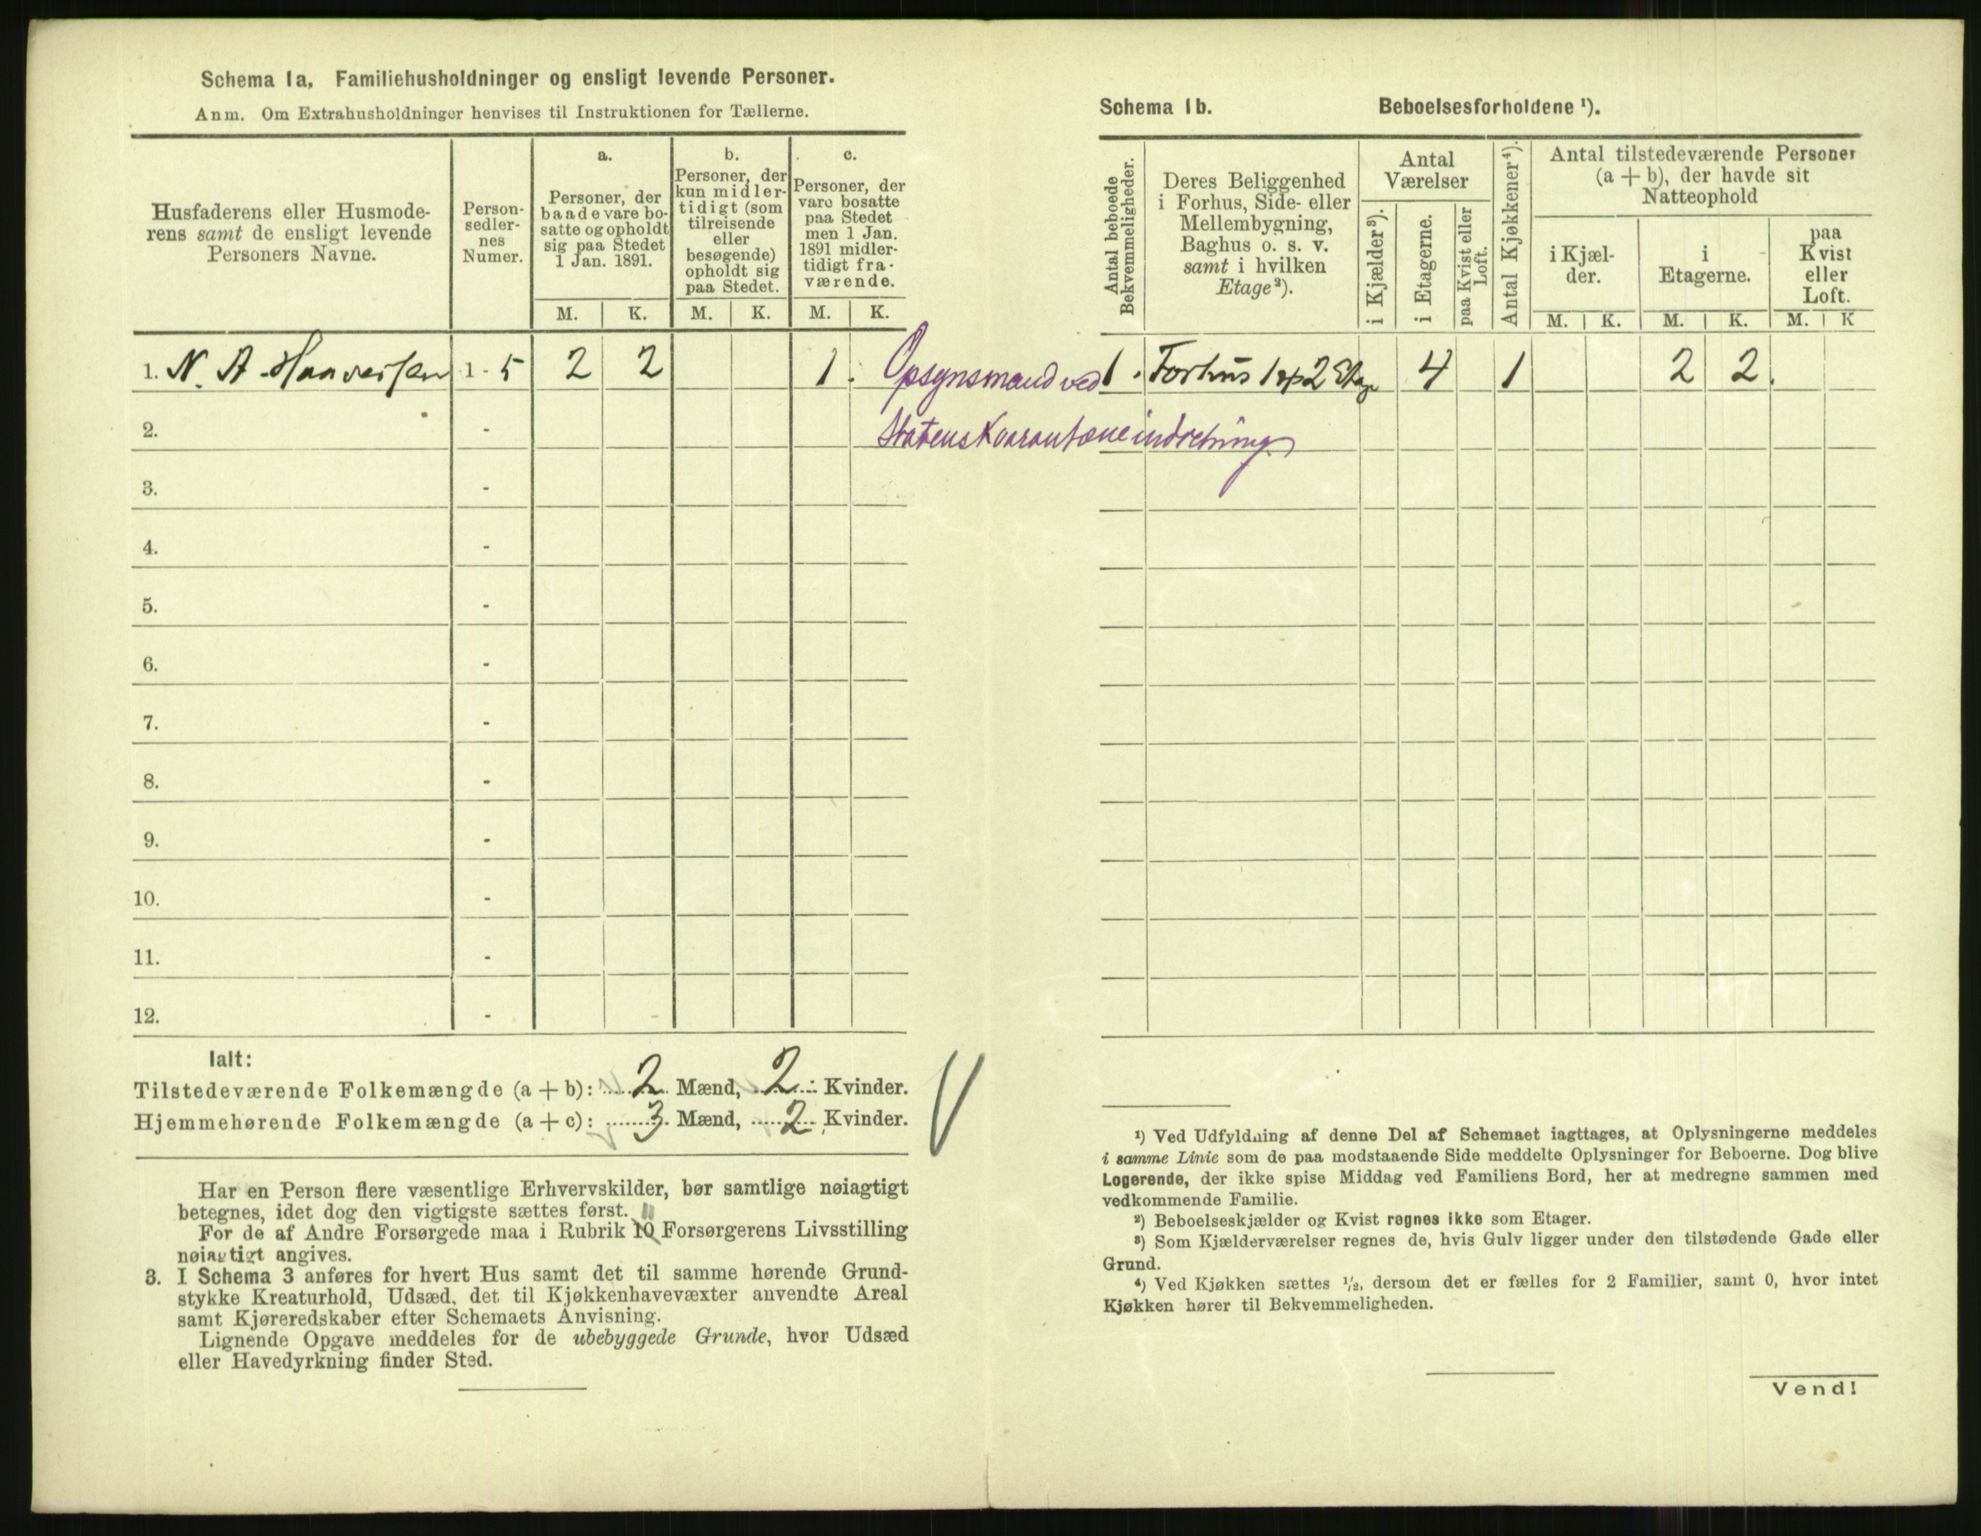 Schema 1a, Familiehusholdninger og ensligt levende Personer.
Anm. Om Extrahusholdninger henvises til Instruktionen for Tællerne.
Husfaderens eller Husmode-
rens samt de ensligt levende
Personers Navne.
Person-
sedler-
nes
Numer.
a.
Personer, der
baade vare bo-
satte og opholdt
sig paa Stedet
1 Jan. 1891.
b.
Personer, der
kun midler-
tidigt (som
tilreisende
eller
besøgende)
opholdt sig
paa Stedet.
c.
Personer, der
vare bosatte
paa Stedet
men 1 Jan.
1891 midler-
tidigt fra-
værende.
M. K. M. K. M. K.
1. N. A. 1 - 5 2 2 1.
Opsynsmand ved
Statens Kvarantæneindretning
2. -
3. -
4. -
5. -
6. -
7. -
8. -
9. -
10. -
11. -
12. -
Ialt:
Tilstedeværende Folkemængde (a + b): 2 Mænd, 2 Kvinder.
Hjemmehørende Folkemængde (a + c): 3 Mænd, 2 Kvinder.
Har en Person flere væsentlige Erhvervskilder, bør samtlige nøiagtigt
betegnes, idet dog den vigtigste sættes først.
11
For de af Andre Forsørgede maa i Rubrik 10 Forsørgerens Livsstilling
nøiagtigt angives.
3. I Schema 3 anføres for hvert Hus samt det til samme hørende Grund-
stykke Kreaturhold, Udsæd, det til Kjøkkenhavevæxter anvendte Areal
samt Kjøreredskaber efter Schemaets Anvisning.
Lignende Opgave meddeles for de ubebyggede Grunde, hvor Udsæd
eller Havedyrkning finder Sted.
Schema 1b. Beboelsesforholdene ¹).
Antal beboede
Bekvemmeligheder.
Deres Beliggenhed
i Forhus, Side- eller
Mellembygning,
Baghus o. s. v.
samt i hvilken
Etage ²).
Antal
Værelser
i Kjælder ³).
i Etagerne.
paa Kvist eller
Loft.
Antal Kjøkkener ⁴).
Antal tilstedeværende Personer
(a + b), der havde sit
Natteophold
i Kjæl-
der.
i
Etagerne.
paa
Kvist
eller
Loft.
M. K. M. K. M. K
1. Forhus 1 og 2 Etage 4 1 2 2.
¹) Ved Udfyldning af denne Del af Schemaet iagttages, at Oplysningerne meddeles
i samme Linie som de paa modstaaende Side meddelte Oplysninger for Beboerne. Dog blive
Logerende, der ikke spise Middag ved Familiens Bord, her at medregne sammen med
vedkommende Familie.
²) Beboelseskjælder og Kvist regnes ikke som Etager.
³) Som Kjælderværelser regnes de, hvis Gulv ligger under den tilstødende Gade eller
Grund.
⁴) Ved Kjøkken sættes ½, dersom det er fælles for 2 Familier, samt 0, hvor intet
Kjøkken hører til Bekvemmeligheden.
Vend!